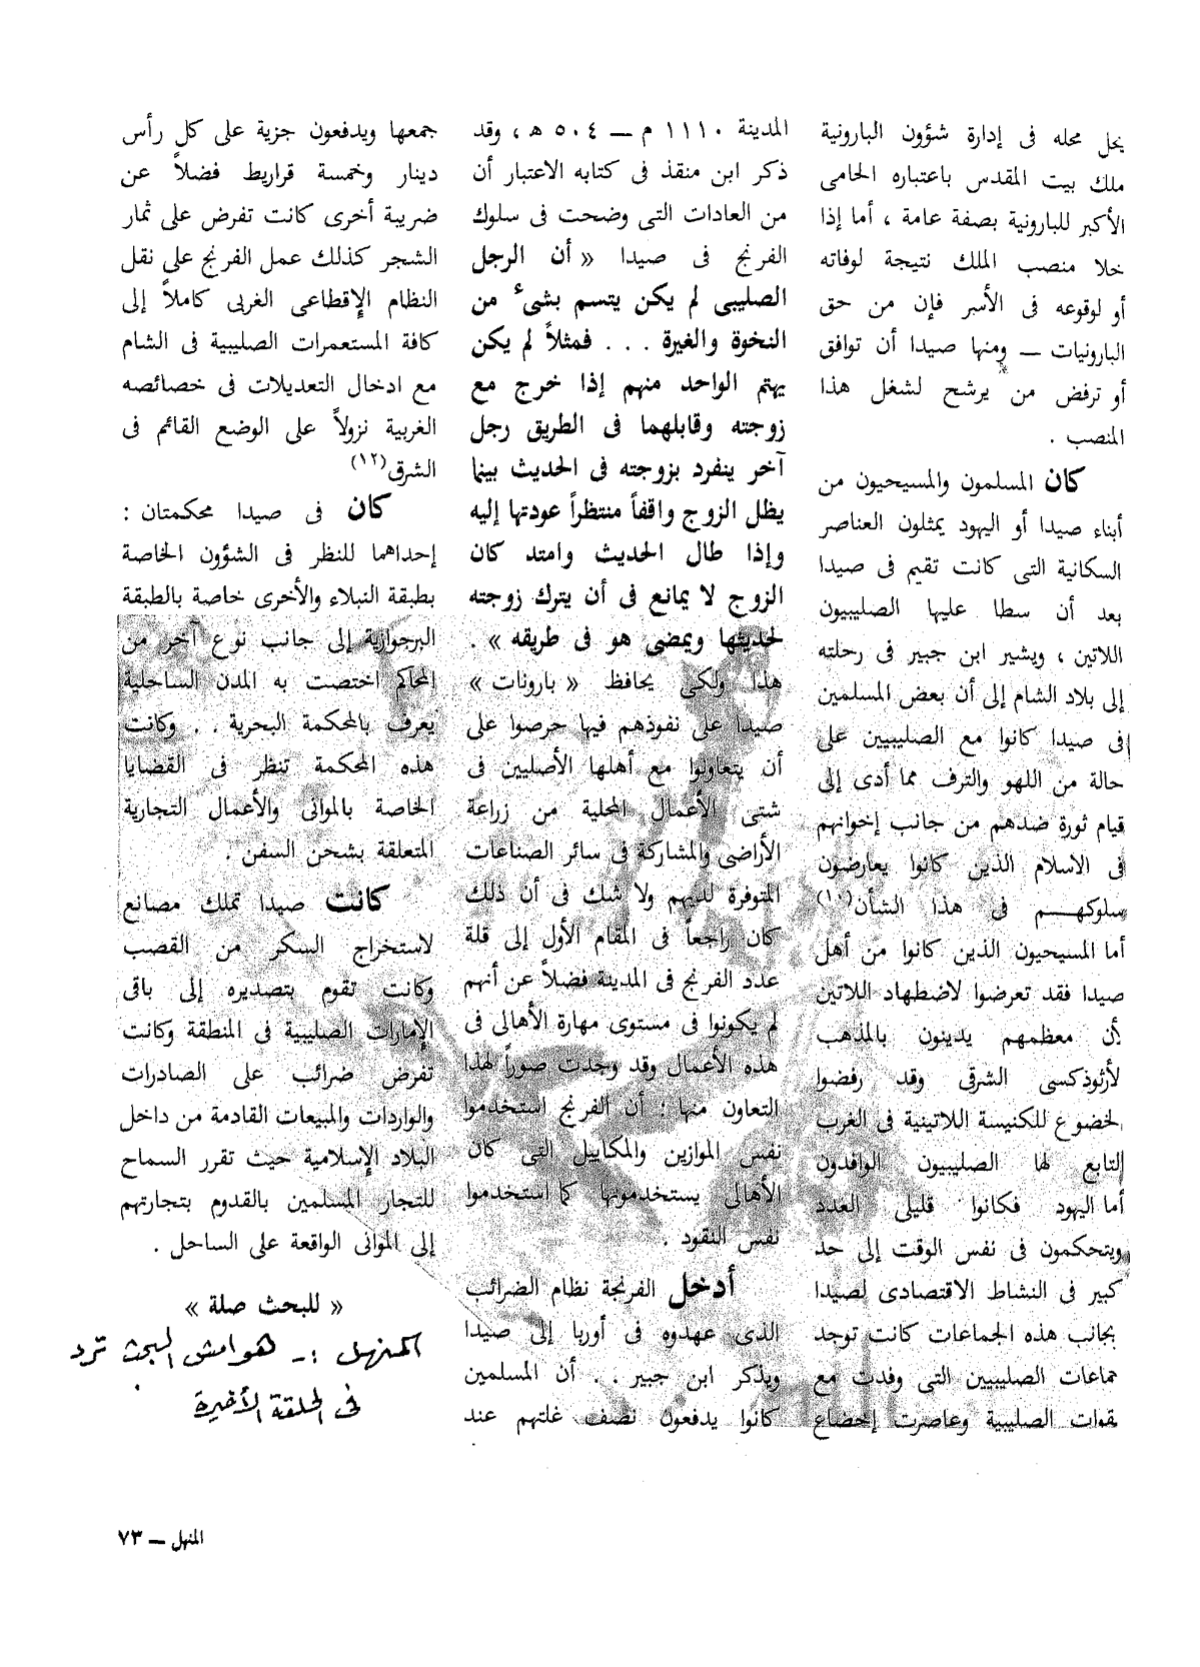 يحل محله فى إدارة شؤون البارونية
ملك بيت المقدس باعتباره الحامى
الأكبر للبارونية بصفة عامة ، أما إذا
خلا منصب الملك نتيجة لوفاته
أو لوقوعه فى الأسر فإن من حق
البارونيات — ومنها صيدا أن توافق
أو ترفض من يرشح لشغل هذا
المنصب .
كان المسلمون والمسيحيون من
أبناء صيدا أو اليهود يمثلون العناصر
السكانية التى كانت تقيم فى صيدا
بعد أن سطا عليها الصليبيون
اللاتين ، ويشير ابن جبير فى رحلته
إلى بلاد الشام إلى أن بعض المسلمين
فى صيدا كانوا مع الصليبيين على
حالة من اللهو والترف مما أدى إلى
قيام ثورة ضدهم من جانب إخوانهم
فى الاسلام الذين كانوا يعارضون
سلوكهم فى هذا الشأن(١٠)
أما المسيحيون الذين كانوا من أهل
صيدا فقد تعرضوا لاضطهاد اللاتين
أن معظمهم يدينون بالمذهب
لأرثوذكسى الشرقى وقد رفضوا
لخضوع للكنيسة اللاتينية فى الغرب
التابع لها الصليبيون الوافدون
أما اليهود فكانوا قليلى العدد
ويتحكمون فى نفس الوقت إلى حد
كبير فى النشاط الاقتصادى لصيدا
بجانب هذه الجماعات كانت توجد
جماعات الصليبيين التى وفدت مع
لقوات الصليبية وعاصرت إخضاع
المدينة ١١١٠ م — ٥٠٤ ه ، وقد
ذكر ابن منقذ فى كتابه الاعتبار أن
من العادات التى وضحت فى سلوك
الفرنج فى صيدا « أن الرجل
الصليبى لم يكن يتسم بشىء من
النخوة والغيرة . . . فمثلاً لم يكن
يهتم الواحد منهم إذا خرج مع
زوجته وقابلهما فى الطريق رجل
آخر ينفرد بزوجته فى الحديث بينما
يظل الزوج واقفاً منتظراً عودتها إليه
وإذا طال الحديث وامتد كان
الزوج لا يمانع فى أن يترك زوجته
لحديثها ويمضى هو فى طريقه » .
هذا ولكى يحافظ « بارونات »
صيدا على نفوذهم فيها حرصوا على
أن يتعاونوا مع أهلها الأصليين فى
شتى الأعمال المحلية من زراعة
الأراضى والمشاركة فى سائر الصناعات
المتوفرة لديهم ولا شك فى أن ذلك
كان راجعاً فى المقام الأول إلى قلة
عدد الفرنج فى المدينة فضلاً عن أنهم
لم يكونوا فى مستوى مهارة الأهالى فى
هذه الأعمال وقد وجدت صوراً لهذا
التعاون منها : أن الفرنج استخدموا
نفس الموازين والمكاييل التى كان
الأهالى يستخدمونها كما استخدموا
نفس النقود .
أدخل الفرنجة نظام الضرائب
الذى عهدوه فى أوربا إلى صيدا
ويذكر ابن جبير . . أن المسلمين
كانوا يدفعون نصف غلتهم عند
جمعها ويدفعون جزية على كل رأس
دينار وخمسة قراريط فضلاً عن
ضريبة أخرى كانت تفرض على ثمار
الشجر كذلك عمل الفرنج على نقل
النظام الإقطاعى الغربى كاملاً إلى
كافة المستعمرات الصليبية فى الشام
مع ادخال التعديلات فى خصائصه
الغربية نزولاً على الوضع القائم فى
الشرق(١٢)
كان فى صيدا محكمتان :
إحداهما للنظر فى الشؤون الخاصة
بطبقة النبلاء والأخرى خاصة بالطبقة
البرجوازية إلى جانب نوع آخر من
المحاكم اختصت به المدن الساحلية
يعرف بالمحكمة البحرية . . وكانت
هذه المحكمة تنظر فى القضايا
الخاصة بالموانى والأعمال التجارية
المتعلقة بشحن السفن .
كانت صيدا تملك مصانع
لاستخراج السكر من القصب
وكانت تقوم بتصديره إلى باقى
الإمارات الصليبية فى المنطقة وكانت
تفرض ضرائب على الصادرات
والواردات والمبيعات القادمة من داخل
البلاد الإسلامية حيث تقرر السماح
للتجار المسلمين بالقدوم بتجارتهم
إلى الموانى الواقعة على الساحل .
« للبحث صلة »
المنهل :- هوامش البحث ترد
فى الحلقة الأخيرة
المنهل — ٧٣